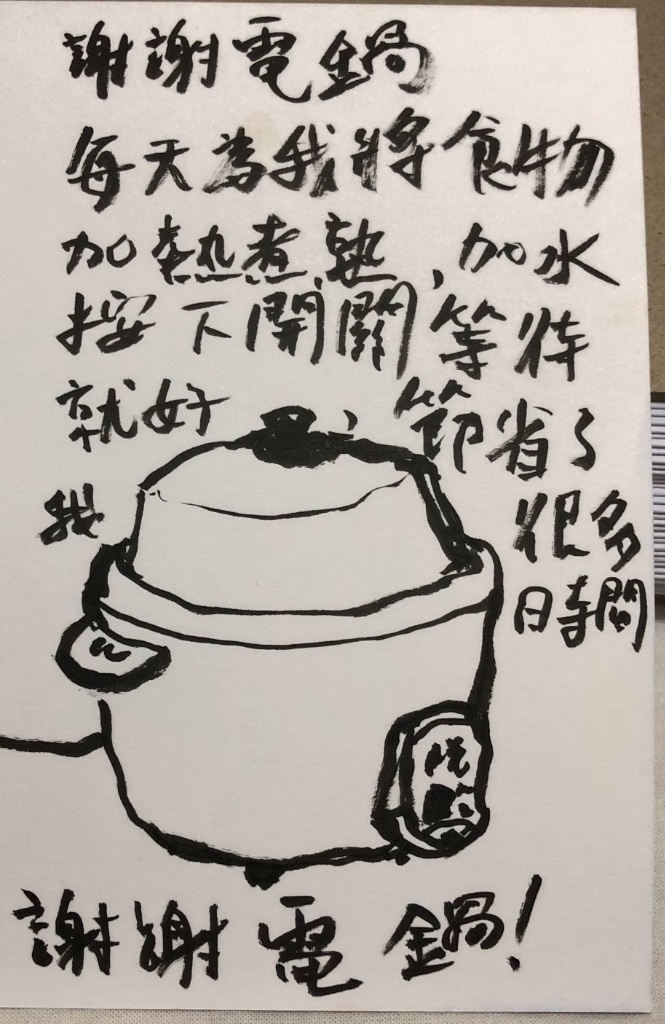 謝謝電鍋
每天為我將食物
加熱煮熟,加水
按下開關 等待
就好 節省了
我 很多
時間
謝謝電鍋!